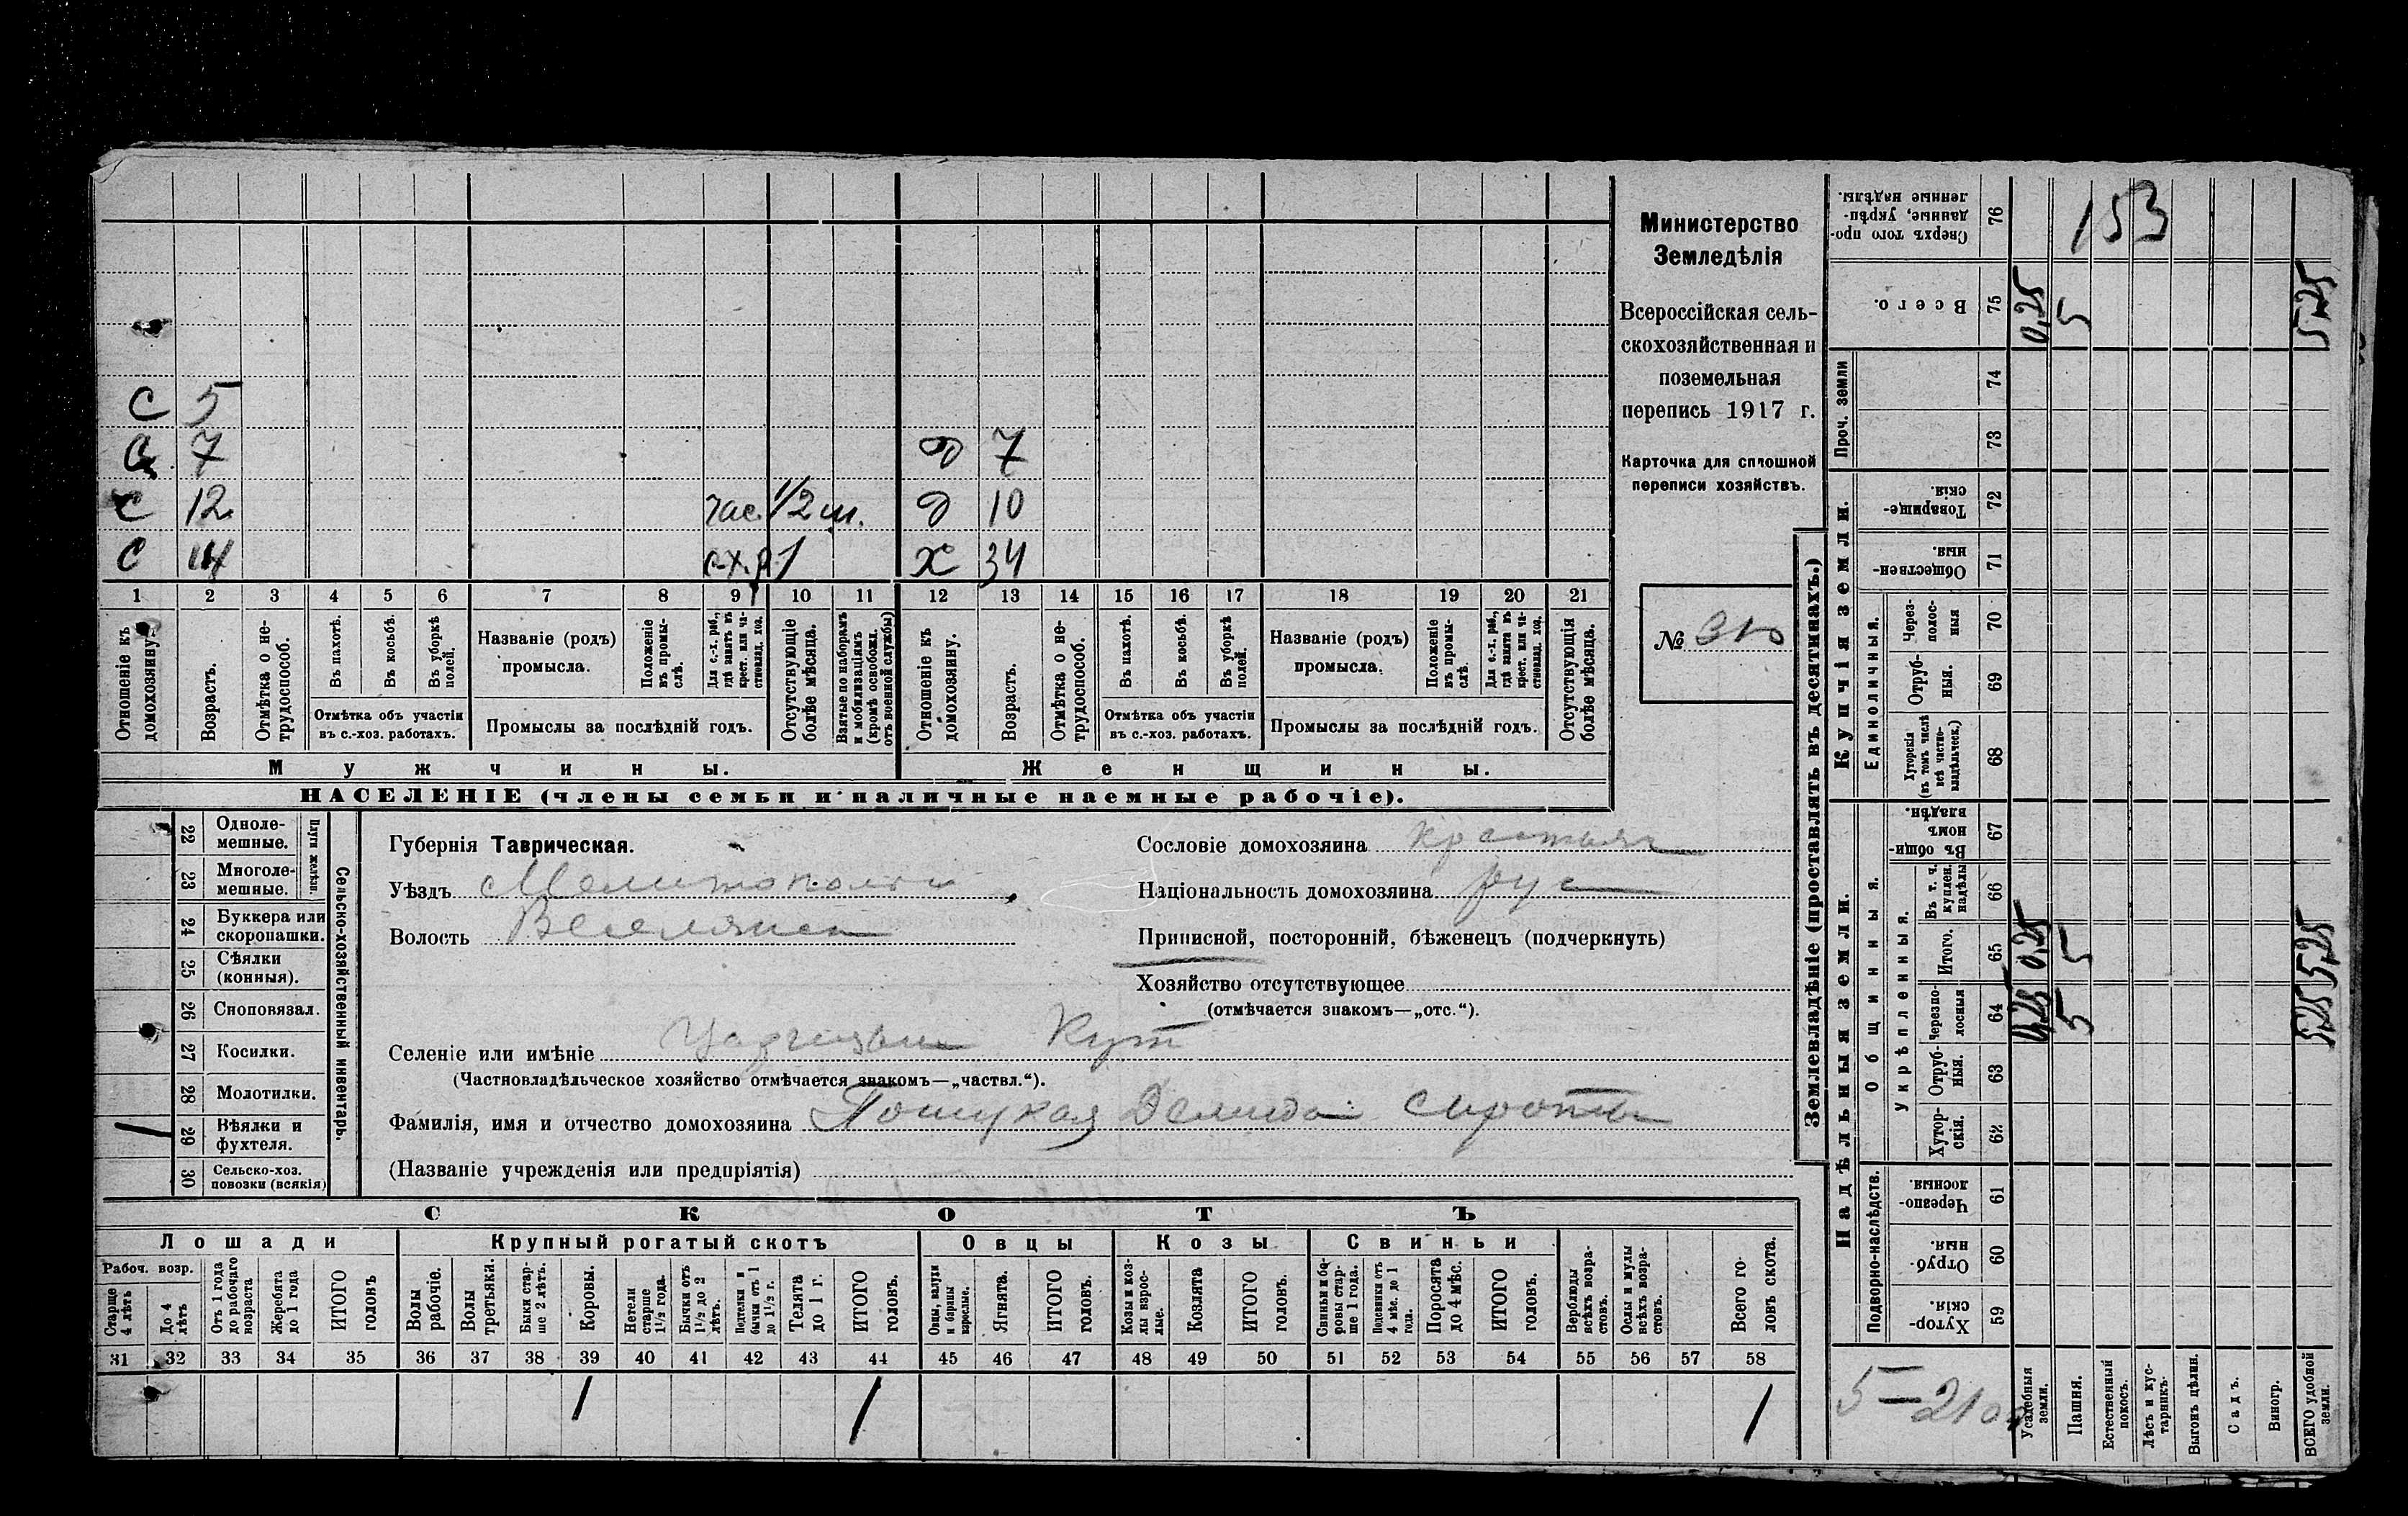 Министерство
Земледѣлія
Всероссійская сель-
скохозяйственная и
поземельная
перепись 1917 г.
Карточка для сплошной
переписи хозяйствъ.
№ 310
С 5
С 7 д 7
С 12 час. 1/2 м. д 10
С 14 с.х.р. 1 х 34
1 2 3 4 5 6 7 8 9 10 11 12 13 14 15 16 17 18 19 20 21
Отношеніе къ домохозяину.
Возрастъ.
Отмѣтка о не-трудоспособ.
Въ пахотѣ.
Въ косьбѣ.
Въ уборкѣ полей.
Отмѣтка объ участіи
въ с.-хоз. работахъ.
Названіе (родъ)
промысла.
Положеніе въ промы-слѣ.
Для с.-х. раб., гдѣ занятъ въ крест. или ча-стновлад. хоз.
Промыслы за послѣдній годъ.
Отсутствующіе болѣе мѣсяца.
Взятые по наборамъ и мобилизаціямъ (кромѣ освобожд. отъ военной службы)
Отношеніе къ домохозяину.
Возрастъ.
Отмѣтка о не-трудоспособ.
Въ пахотѣ.
Въ косьбѣ.
Въ уборкѣ полей.
Отмѣтка объ участіи
въ с.-хоз. работахъ.
Названіе (родъ)
промысла.
Положеніе въ промы-слѣ.
Для с.-х. раб., гдѣ занятъ въ крест. или ча-стновлад. хоз.
Промыслы за послѣдній годъ.
Отсутствующія болѣе мѣсяца.
Мужчины. Женщины.
НАСЕЛЕНІЕ (члены семьи и наличные наемные рабочіе).
22 Одноле-мешные.
23 Многоле-мешные.
Плуги желѣзн.
24 Буккера или скоропашки.
25 Сѣялки (конныя).
26 Сноповязал.
27 Косилки.
28 Молотилки.
/ 29 Вѣялки и фухтеля.
30 Сельско-хоз. повозки (всякія)
Сельско-хозяйственный инвентарь.
Губернія Таврическая.
Уѣздъ
Волость
Сословіе домохозяина крестьян
Національность домохозяина рус
Приписной, посторонній, бѣженецъ (подчеркнуть)
Хозяйство отсутствующее
(отмѣчается знакомъ—„отс.“).
Селеніе или имѣніе Кут
(Частновладѣльческое хозяйство отмѣчается знакомъ—„частвл.“).
Фамилія, имя и отчество домохозяина Демида сироты
(Названіе учрежденія или предпріятія)
СКОТЪ
Лошади Крупный рогатый скотъ Овцы Козы Свиньи
Рабоч. возр.
Старше 4 лѣтъ
До 4 лѣтъ
Отъ 1 года до рабочаго возраста
Жеребята до 1 года
ИТОГО головъ
Волы рабочіе.
Волы третьяки.
Быки стар-ше 2 лѣтъ.
Коровы.
Нетели старше 1½ года.
Бычки отъ 1½ до 2 лѣтъ.
Подтелки и бычки отъ 1 до 1½ г.
Телята до 1 г.
ИТОГО головъ.
Овцы, валухи и бараны взрослые.
Ягнята.
ИТОГО головъ.
Козы и коз-лы взрос-лые.
Козлята
ИТОГО головъ.
Свиньи и бо-ровы стар-ше 1 года.
Подсвинки отъ 4 мѣс. до 1 года.
Поросята до 4 мѣс.
ИТОГО головъ.
Верблюды всѣхъ возра-стовъ.
Ослы и мулы всѣхъ возра-стовъ.
Всего го-ловъ скота.
31 32 33 34 35 36 37 38 39 40 41 42 43 44 45 46 47 48 49 50 51 52 53 54 55 56 57 58
1 1 1
Землевладѣніе (проставлять въ десятинахъ.)
Сверхъ того про-данные, укрѣп-ленные надѣлы. 76 153
Всего. 75 0,25 5 5,25
Проч. земли
74
73
Купчія земли.
Товарище-скія. 72
Обществен-ныя. 71
Единоличныя.
Через-полос-ныя 70
Отруб-ныя. 69
Хуторскія (въ томъ числѣ всѣ частно-владѣльческ.) 68
Надѣльныя земли.
Общинныя.
Въ общи-номъ владѣн. 67
Укрѣпленныя.
Въ т. ч. куплен. надѣлы 66
Итого. 65 0,25 5 5,25
Черезпо-лосныя 64 0,25 5 5,25
Отруб-ныя. 63
Хутор-скія. 62
Подворно-наслѣдств.
Черезпо-лосныя. 61
Отруб-ныя. 60
Хутор-скія. 59
5–2100
Усадебныя земли.
Пашня.
Естественный покосъ.
Лѣсъ и кус-тарникъ.
Выгонъ цѣлин.
Садъ.
Виногр.
ВСЕГО удобной земли.